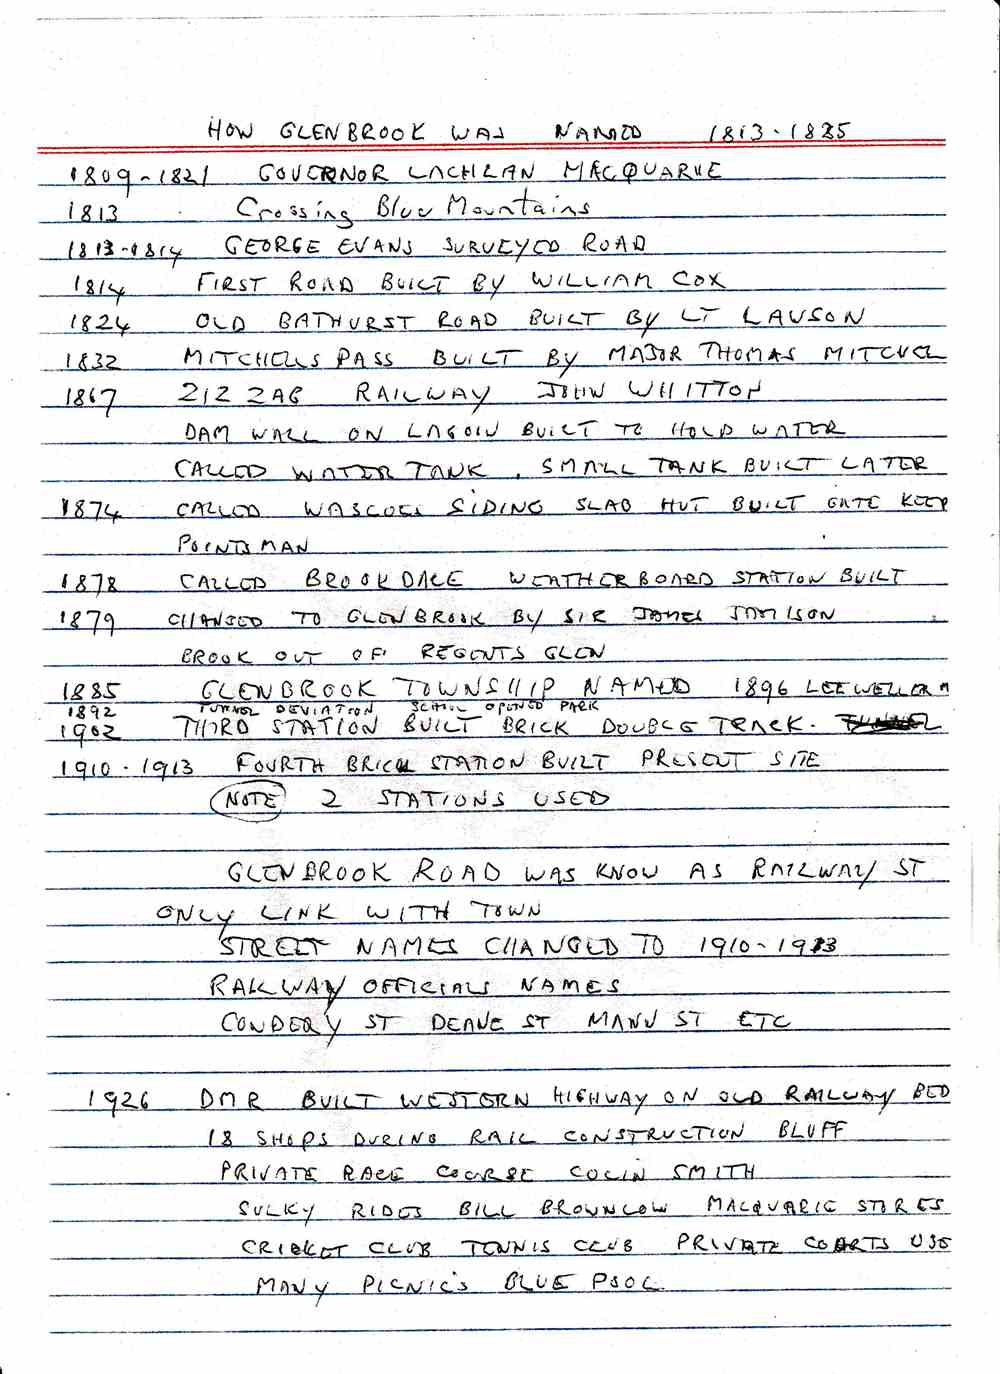 HOW GLENBROOK WAS NAMED 1813-1885
1809-1821 GOVERNOR LACHLAN MACQUARIE
1813 Crossing Blue Mountains
1813-1814 GEORGE EVANS SURVEYED ROAD
1814 FIRST ROAD BUILT BY WILLIAM COX
1824 OLD BATHURST ROAD BUILT BY LT LAWSON
1832 MITCHELLS PASS BUILT BY MAJOR THOMAS MITCHEL
1867 ZIZ ZAG RAILWAY JOHN WHITTON
DAM WALL ON LAGOIN BUILT TO HOLD WATER
CALLED WATER TANK. SMALL TANK BUILT LATER
1874 CALLED WASCOES SIDING SLAB HUT BUILT GATE KEEP
POINTSMAN
1878 CALLED BROOKDALE WEATHERBOARD STATION BUILT
1879 CHANGED TO GLENBROOK BY SIR JAMES JAMISON
BROOK OUT OF REGENTS GLEN
1885 GLENBROOK TOWNSHIP NAMED 1896 LEEWELLER
1892 TUNNEL DEVIATION SCHOOL OPENED PARK
1902 THIRD STATION BUILT BRICK DOUBLE TRACK.
1910-1913 FOURTH BRICK STATION BUILT PRESENT SITE
NOTE 2 STATIONS USED
GLENBROOK ROAD WAS KNOW AS RAILWAY ST
ONLY LINK WITH TOWN
STREET NAMES CHANGED TO 1910-1913
RAILWAY OFFICIALS NAMES
CONDERY ST DEANE ST MANN ST ETC
1926 DMR BUILT WESTERN HIGHWAY ON OLD RAILWAY BED
18 SHOPS DURING RAIL CONSTRUCTION BLUFF
PRIVATE RACE COURSE COLIN SMITH
SULKY RIDES BILL BROWNLOW MACQUARIE STORES
CRICKET CLUB TENNIS CLUB PRIVATE COURTS USE
MANY PICNIC'S BLUE POOL